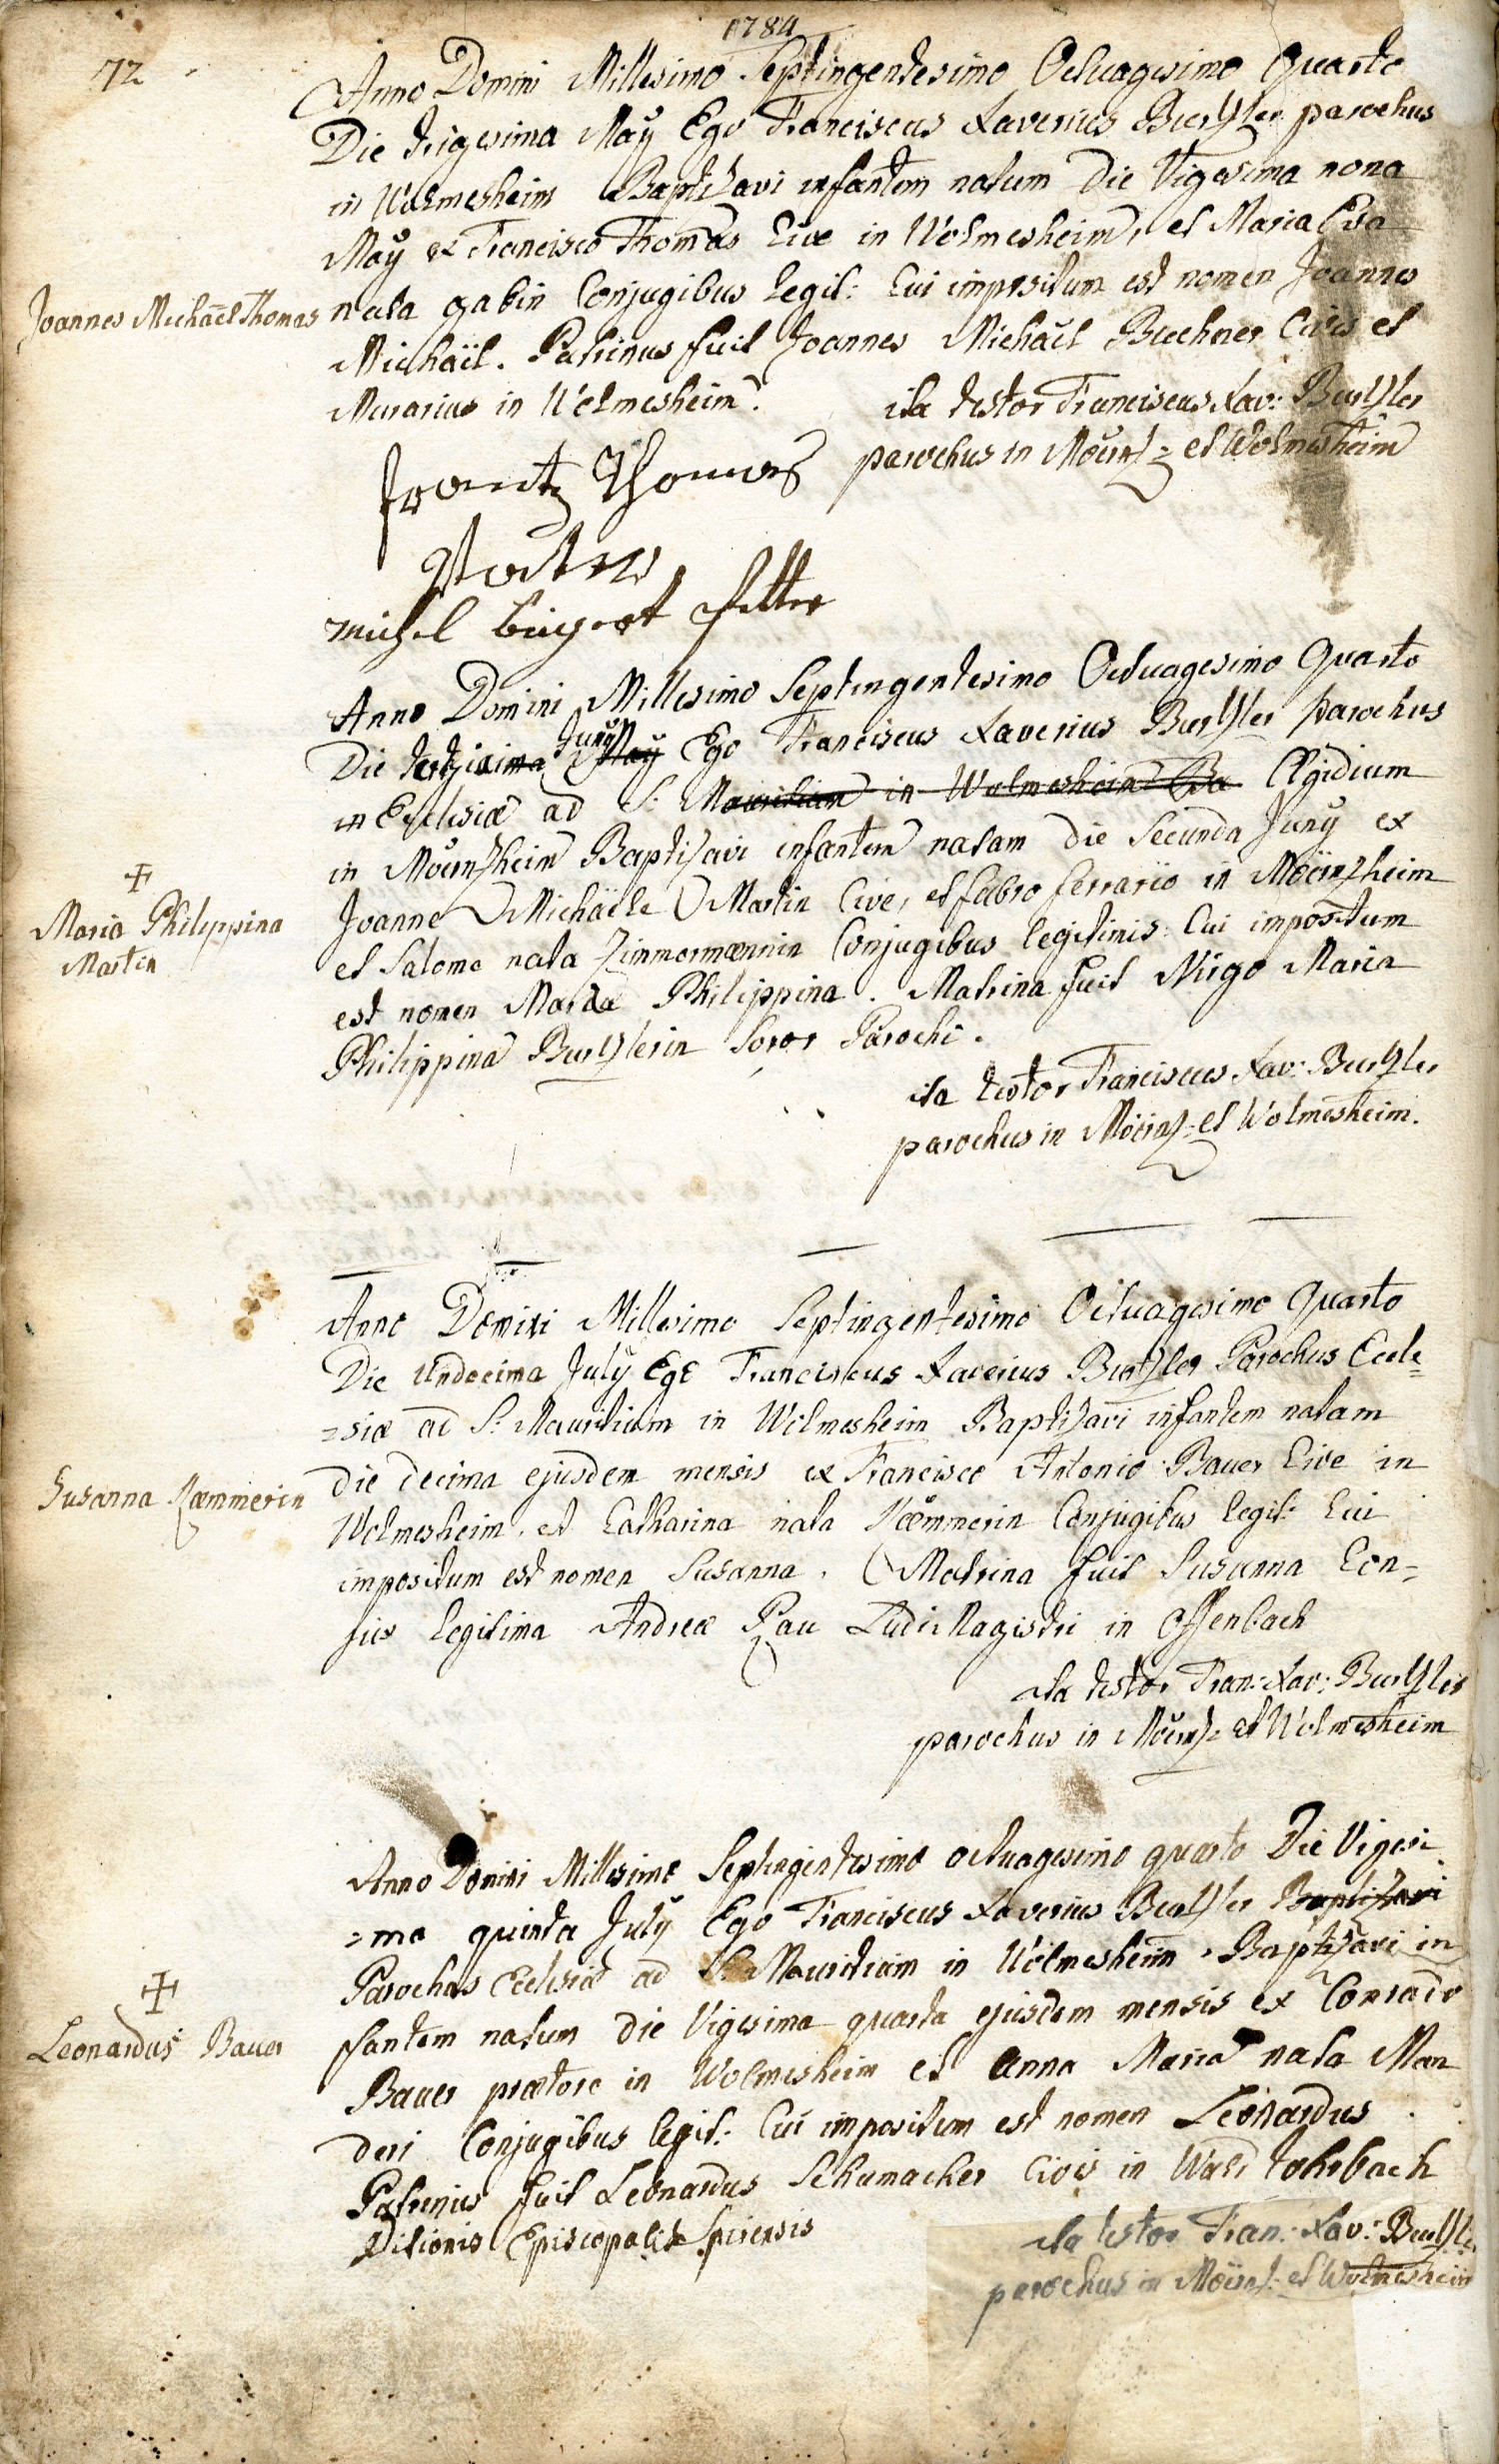 1784
72
Anno Domini Millesimo Septingentesimo Octuagesimo Quarto
Die trigesima Maÿ Ego Franciscus Xaverius Burtzler parochus
in Wolmesheim Baptizavi infantem natum Die Vigesima nona
Maÿ ex Francisco Thomas Cive in Wolmesheim, et Maria Eva
Joannes Michaël Thomas
nata gabin Conjugibus legit: Cui impositum est nomen Joannes
Michaël. Patrinus fuit Joannes Michaël Buchner Civis et
Murarius in Wolmesheim.
ita testor Franciscus Xav: Burtzler
parochus in Möerz= et Wolmesheim
Frantz Thomas
Vatter
michel
Anno Domini Millesimo Septingentesimo Octuagesimo Quarto
Die tertia Junÿ Maÿ Ego Franciscus Xaverius Burtzler parochus
in Ecclesiæ ad S: Mauritium in Wolmesheim Ba Ægidium
in Möerzheim Baptizavi infantem natam die Secunda Junÿ ex
+
Maria Philippina
Martin
Joanne Michaële Martin Cive, et fabro ferrario in Möerzheim
et Salome nata Zimmermænnin Conjugibus legitimis. Cui impositum
est nomen Maria Philippina. Matrina fuit Virgo Maria
Philippina Burtzlerin Soror Parochi.
ita testor Franciscus Xav: Burtzler
parochus in Möerz= et Wolmesheim.
Anno Domini Millesimo Septingentesimo Octuagesimo Quarto
Die Undecima Julÿ Ego Franciscus Xaverius Burtzler Parochus Eccle=
=siæ ad S: Mauritium in Wolmesheim Baptizavi infantem natam
die decima ejusdem mensis ex Francisco Antonio Bauer Cive in
Susanna Kæmmerin
Wolmesheim, et Catharina nata Kæmmerin Conjugibus legit: Cui
impositum est nomen Susanna. Matrina fuit Susanna Con=
jux legitima Andreæ Rau Ludi Magistri in Offenbach
ita testor Fran: Xav: Burtzler
parochus in Möerz= et Wolmesheim
Anno Domini Millesimo Septingentesimo octuagesimo quarto Die Vigesi
=ma quinta Julÿ Ego Franciscus Xaverius Burtzler Baptizavi
Parochus Ecclesiæ ad S: Mauritium in Wolmesheim Baptizavi in
+
Leonardus Bauer
fantem natum die Vigesima quarta ejusdem mensis ex Conrado
Bauer prætore in Wolmesheim et Anna Maria nata Man
deri Conjugibus legit: Cui impositum est nomen Leonardus
Patrinus fuit Leonardus Schumacher Civis in Wald rohrbach
Ditionis Episcopalis Spirensis
ita testor Fran: Xav: Burtzler
parochus in Möerz= et Wolmesheim